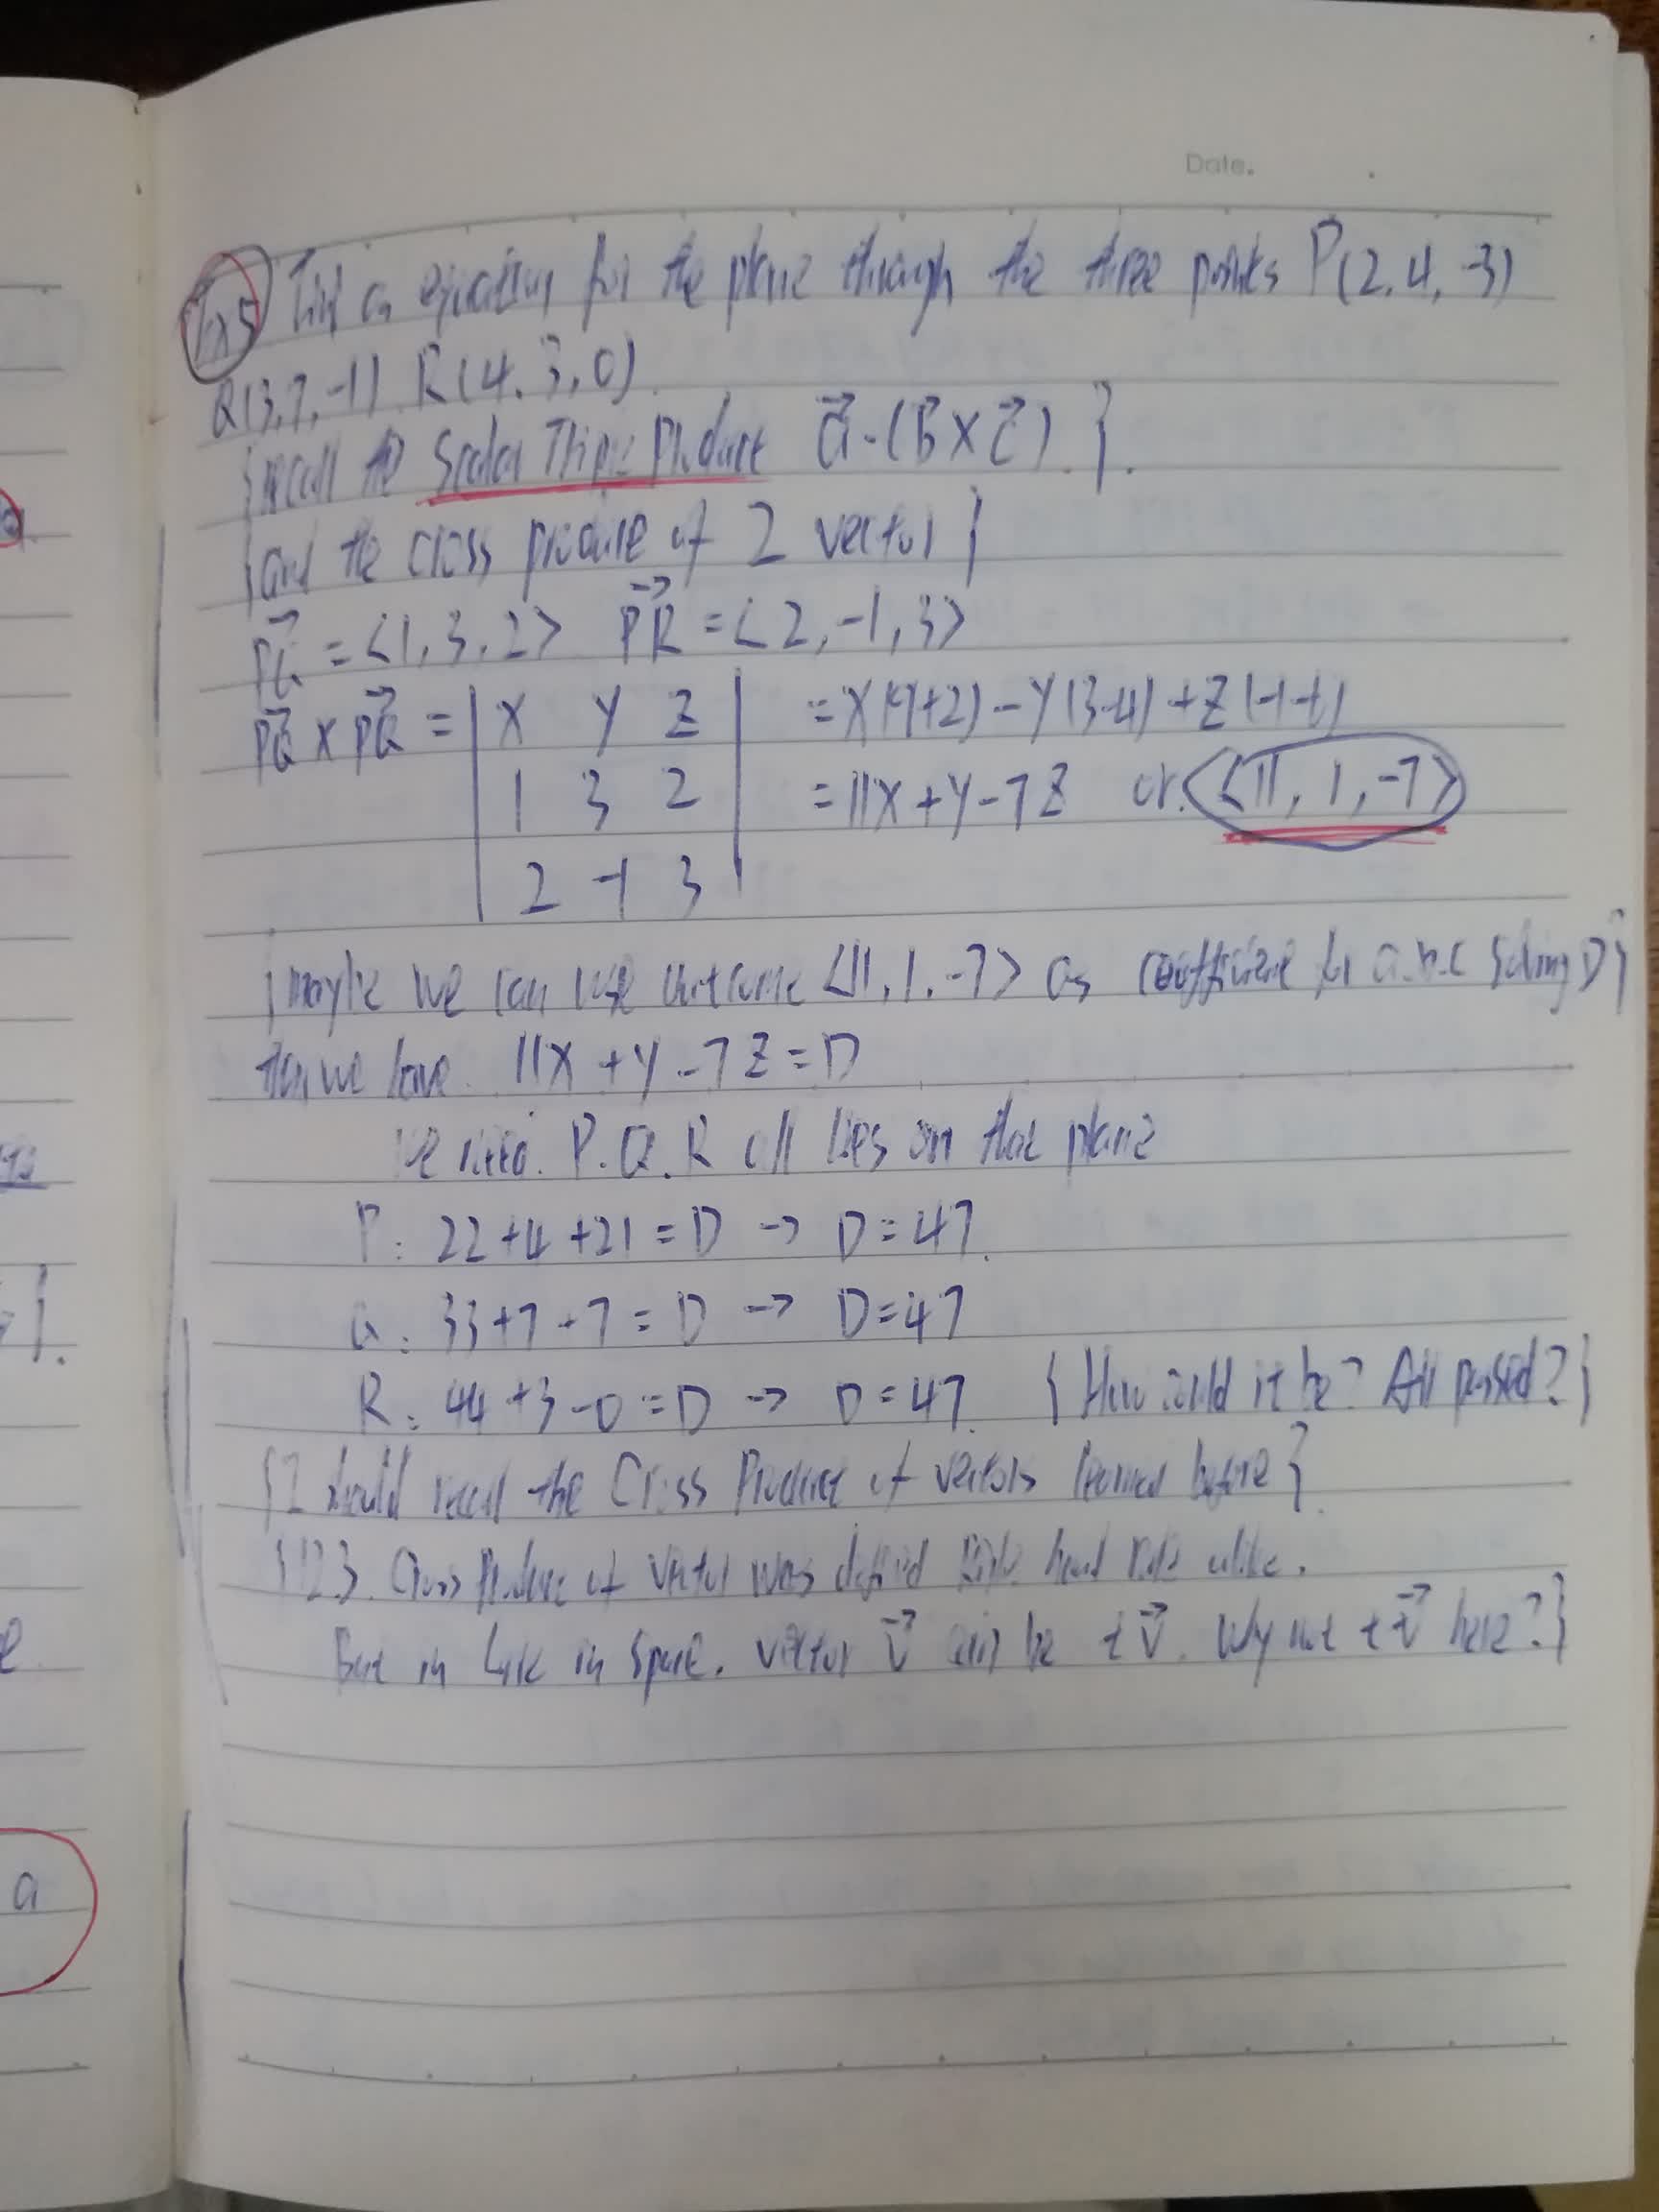 Date.
Ex5 Find an equation for the plane through the three points P(2, 4, -3)
Q(3, 7, -1) R(4, 3, 0)
{recall the Scalar Triple Product a⃗·(b⃗×c⃗).}
{and the cross product of 2 vector}
PQ⃗ = <1, 3, 2> PR⃗ = <2, -1, 3>
PQ⃗ × PQ⃗ = | X Y Z | = X(9+2) - Y(3-4) + Z(-1-6)
| 1 3 2 | = 11X + Y - 7Z or <11, 1, -7>
| 2 -1 3 |
{maybe we can use outcome <11, 1, -7> as coefficient for a.b.c solving D}
then we have 11X + Y - 7Z = D
We need P.Q.R all lies on that plane
P: 22 + 4 + 21 = D → D = 47.
Q: 33 + 7 + 7 = D → D = 47
R: 44 + 3 - 0 = D → D = 47. {How could it be? All passed?}
{I should recall the Cross Product of vectors learned before}
{12.3. Cross Product of vector was defined right hand rule alike.
But in line in space, vector v⃗ can be t v⃗. Why not t v⃗ here?}
a